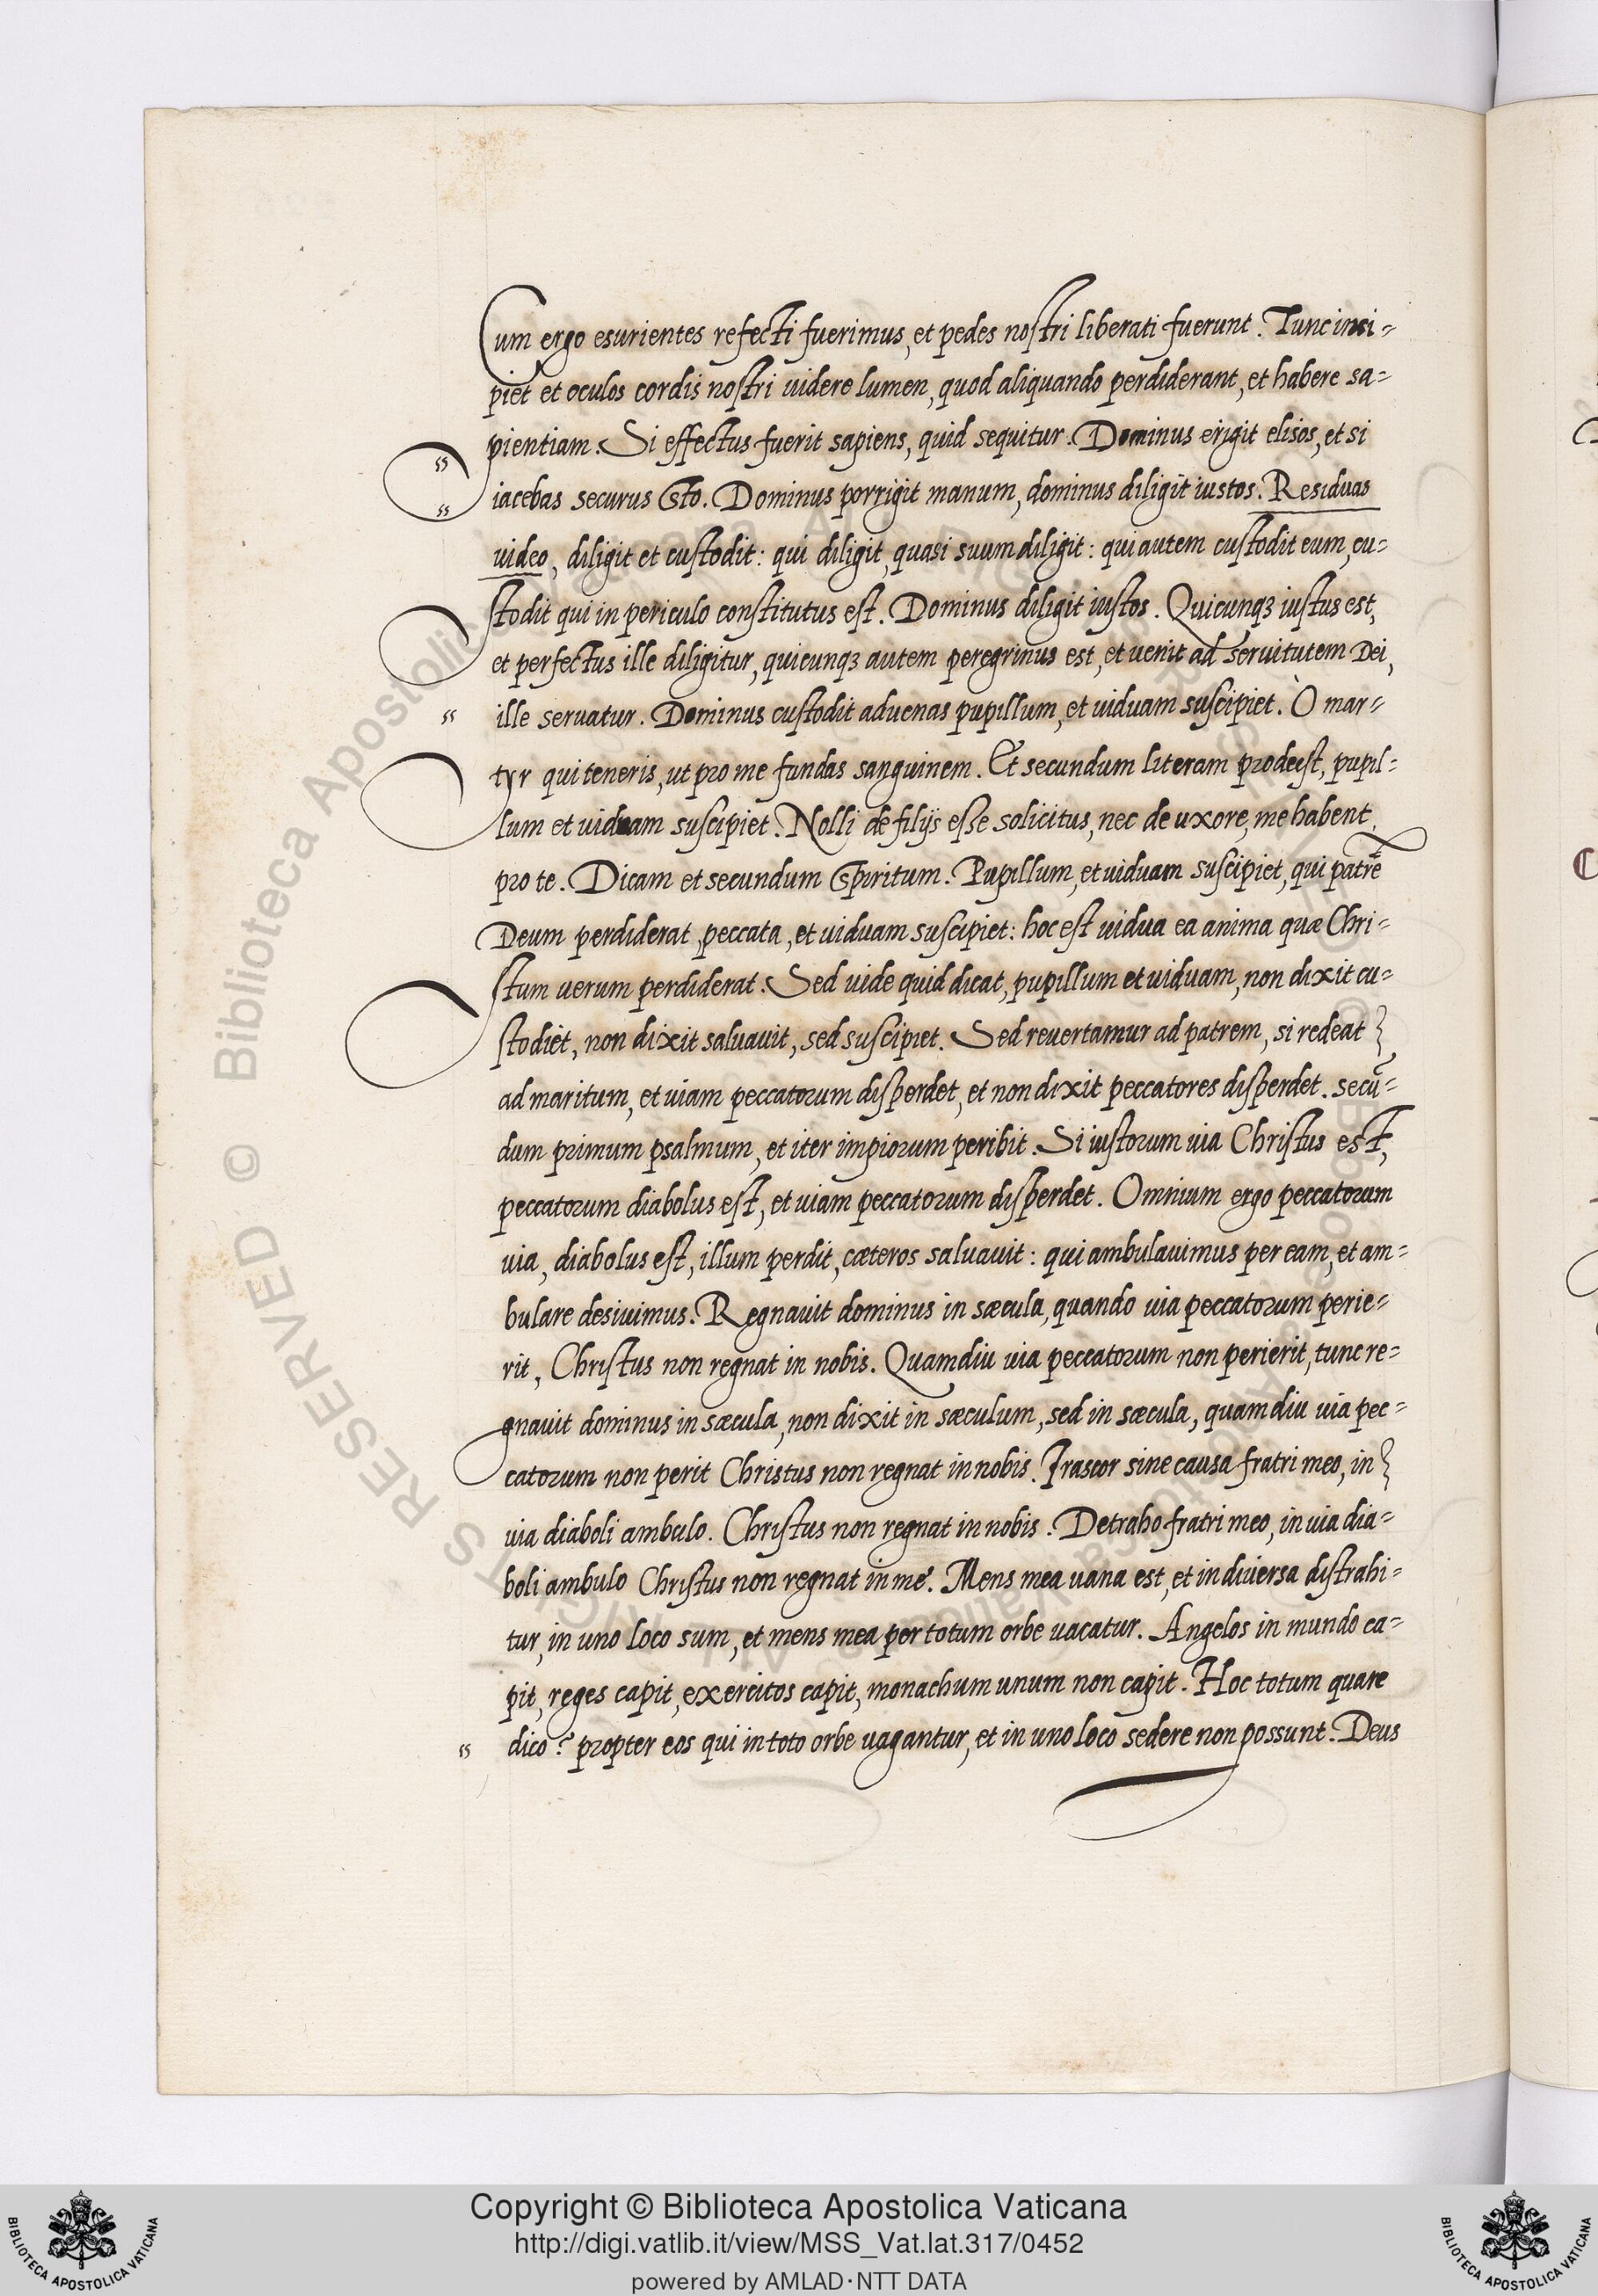 Cum ergo esurientes refecti fuerimus, et pedes nostri liberati fuerunt. Tunc inci-
piet et oculos cordis nostri uidere lumen, quod aliquando perdiderant, et habere sa-
pientiam. Si effectus fuerit sapiens, quid sequitur. Dominus erigit elisos, et si
iacebas securus sto. Dominus porrigit manum, dominus diligit iustos. Residuas
uideo, diligit et custodit: qui diligit, quasi suum diligit: qui autem custodit eum, cu-
stodit qui in periculo constitutus est. Dominus diligit iustos. Quicunqȝ iustus est,
et perfectus ille diligitur, quicunqȝ autem peregrinus est, et uenit ad seruitutem Dei,
ille seruatur. Dominus custodit aduenas pupillum, et uiduam suscipiet. Ò mar-
tyr qui teneris, ut pro me fundas sanguinem. Et secundum literam prodest, pupil-
lum et uiduam suscipiet. Nolli de filijs esse solicitus, nec de uxore, me habent
pro te. Dicam et secundum spiritum. Pupillum, et uiduam suscipiet, qui patrē
Deum perdiderat, peccata, et uiduam suscipiet: hoc est uidua ea anima quæ Chri-
stum uerum perdiderat. Sed uide quid dicat, pupillum et uiduam, non dixit cu-
stodiet, non dixit saluauit, sed suscipiet. Sed reuertamur ad patrem, si redeat
ad maritum, et uiam peccatorum disperdet, et non dixit peccatores disperdet. secū-
dum primum psalmum, et iter impiorum peribit. Si iustorum uia Christus est,
peccatorum diabolus est, et uiam peccatorum disperdet. Omnium ergo peccatorum
uia, diabolus est, illum perdit, cæteros saluauit: qui ambulauimus per eam, et am-
bulare desiuimus. Regnauit dominus in sæcula, quando uia peccatorum perie-
rit, Christus non regnat in nobis. Quamdiu uia peccatorum non perierit, tunc re-
gnauit dominus in sæcula, non dixit in sæculum, sed in sæcula, quamdiu uia pec-
catorum non perit Christus non regnat in nobis. Irascor sine causa fratri meo, in
uia diaboli ambulo. Christus non regnat in nobis. Detraho fratri meo, in uia dia-
boli ambulo Christus non regnat in me. Mens mea uana est, et in diuersa distrahi-
tur, in uno loco sum, et mens mea per totum orbe uacatur. Angelos in mundo ca-
pit, reges capit, exercitos capit, monachum unum non capit. Hoc totum quare
dico? propter eos qui in toto orbe uagantur, et in uno loco sedere non possunt. Deus
Copyright © Biblioteca Apostolica Vaticana
http://digi.vatlib.it/view/MSS_Vat.lat.317/0452
powered by AMLAD·NTT DATA
BIBLIOTECA APOSTOLICA VATICANA
BIBLIOTECA APOSTOLICA VATICANA